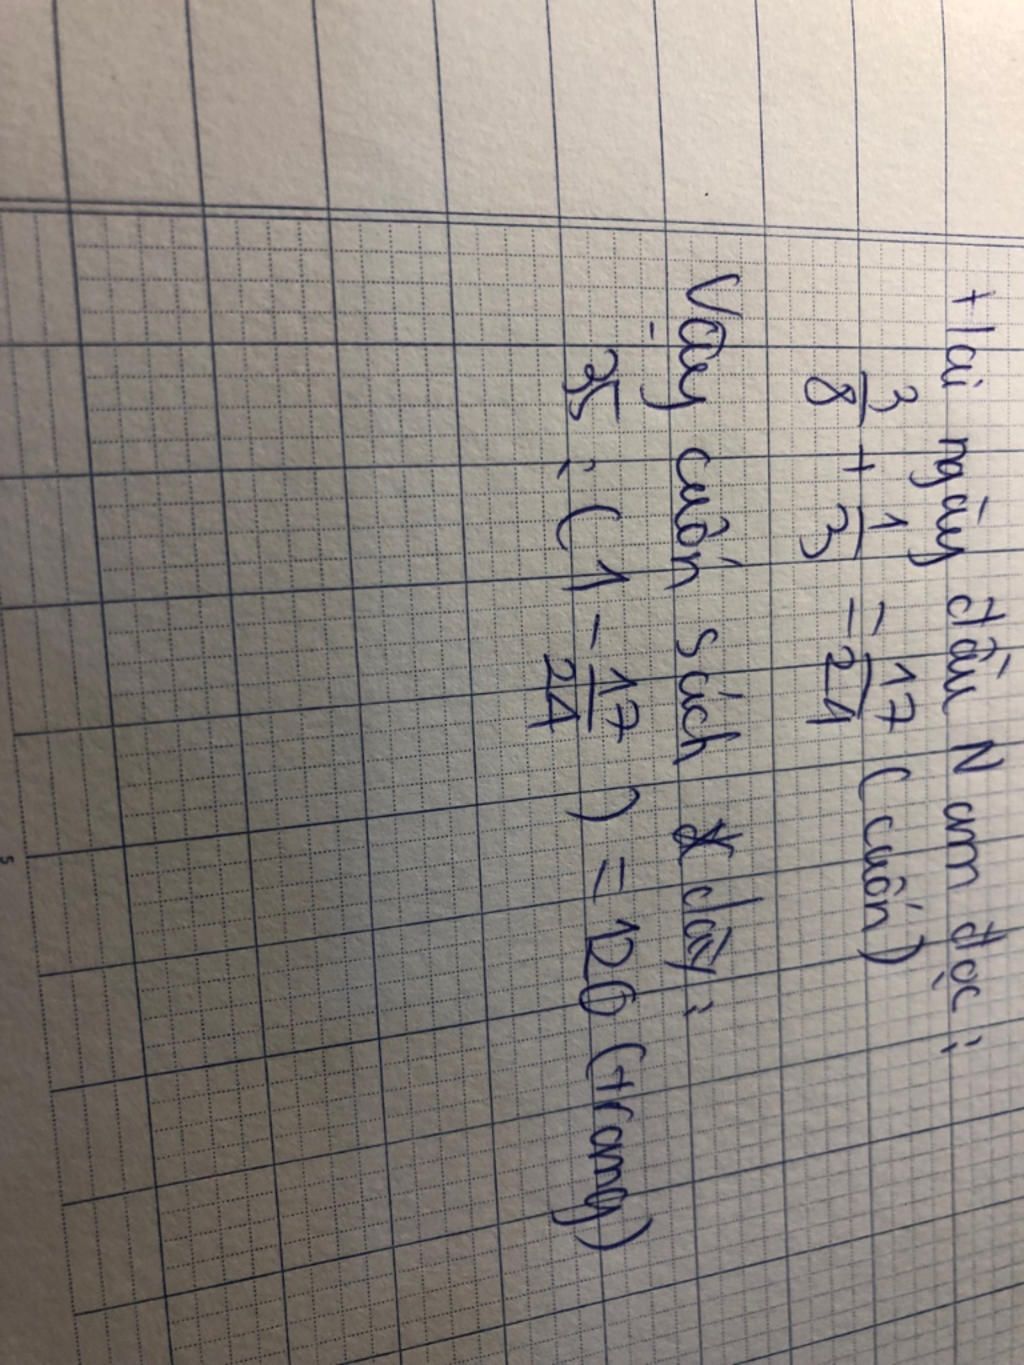 Hai ngày đầu Nam đọc:
3/8 + 1/3 = 17/24 (cuốn)
Vậy cuốn sách dày:
35 : (1 - 17/24) = 120 (trang)
5